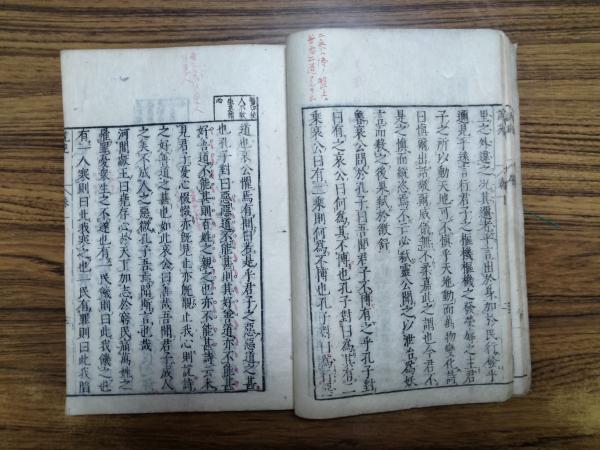 里之外違之況其邇者乎言出於身加於民行發乎
邇見乎遠言行君子之樞機樞機之發榮辱之主君
子之所以動天地可不慎乎天地動而萬物變化詩
曰慎爾出話敬爾威儀無不柔嘉此之謂也今君不
是之慎而縱恣焉不亡必弒靈公聞之以泄冶為妖
言而殺之後果弒於徵舒
魯哀公問於孔子曰吾聞君子不博有之乎孔子對
曰有之哀公曰何為其不博也孔子對曰為其有二
乘哀公曰有二乘則何為不博也孔子對曰為行惡
道也哀公懼焉有間曰若是乎君子之惡惡道之甚
也孔子對曰惡惡道不能甚則其好善道亦不能甚
好善道不能甚則百姓之親之也亦不能甚詩云未
見君子憂心惙惙亦既見止亦既覯止我心則說詩
之好善道之甚也如此哀公曰善哉吾聞君子成人
之美不成人之惡微孔子吾焉聞斯言也哉
河間獻王曰堯存心於天下加志於窮民痛萬姓之
罹罪憂衆生之不遂也有一民飢則曰此我飢之也
有一人寒則曰此我寒之也一民有罪則曰此我陷